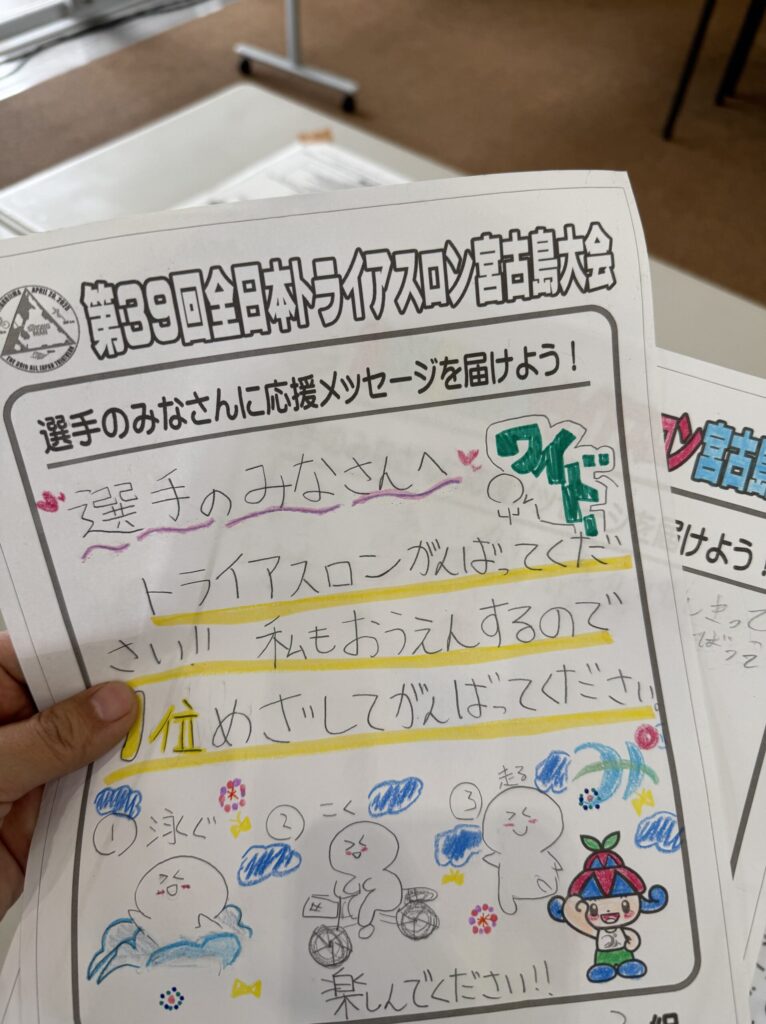 第39回全日本トライアスロン宮古島大会
選手のみなさんに応援メッセージを届けよう！
選手のみなさんへ
ワイドー
トライアスロンがんばってくだ
さい!! 私もおうえんするので
1位めざしてがんばってください。
① 泳ぐ
② こぐ
③ 走る
楽しんでください!!
組
ロン宮古島
届けよう！